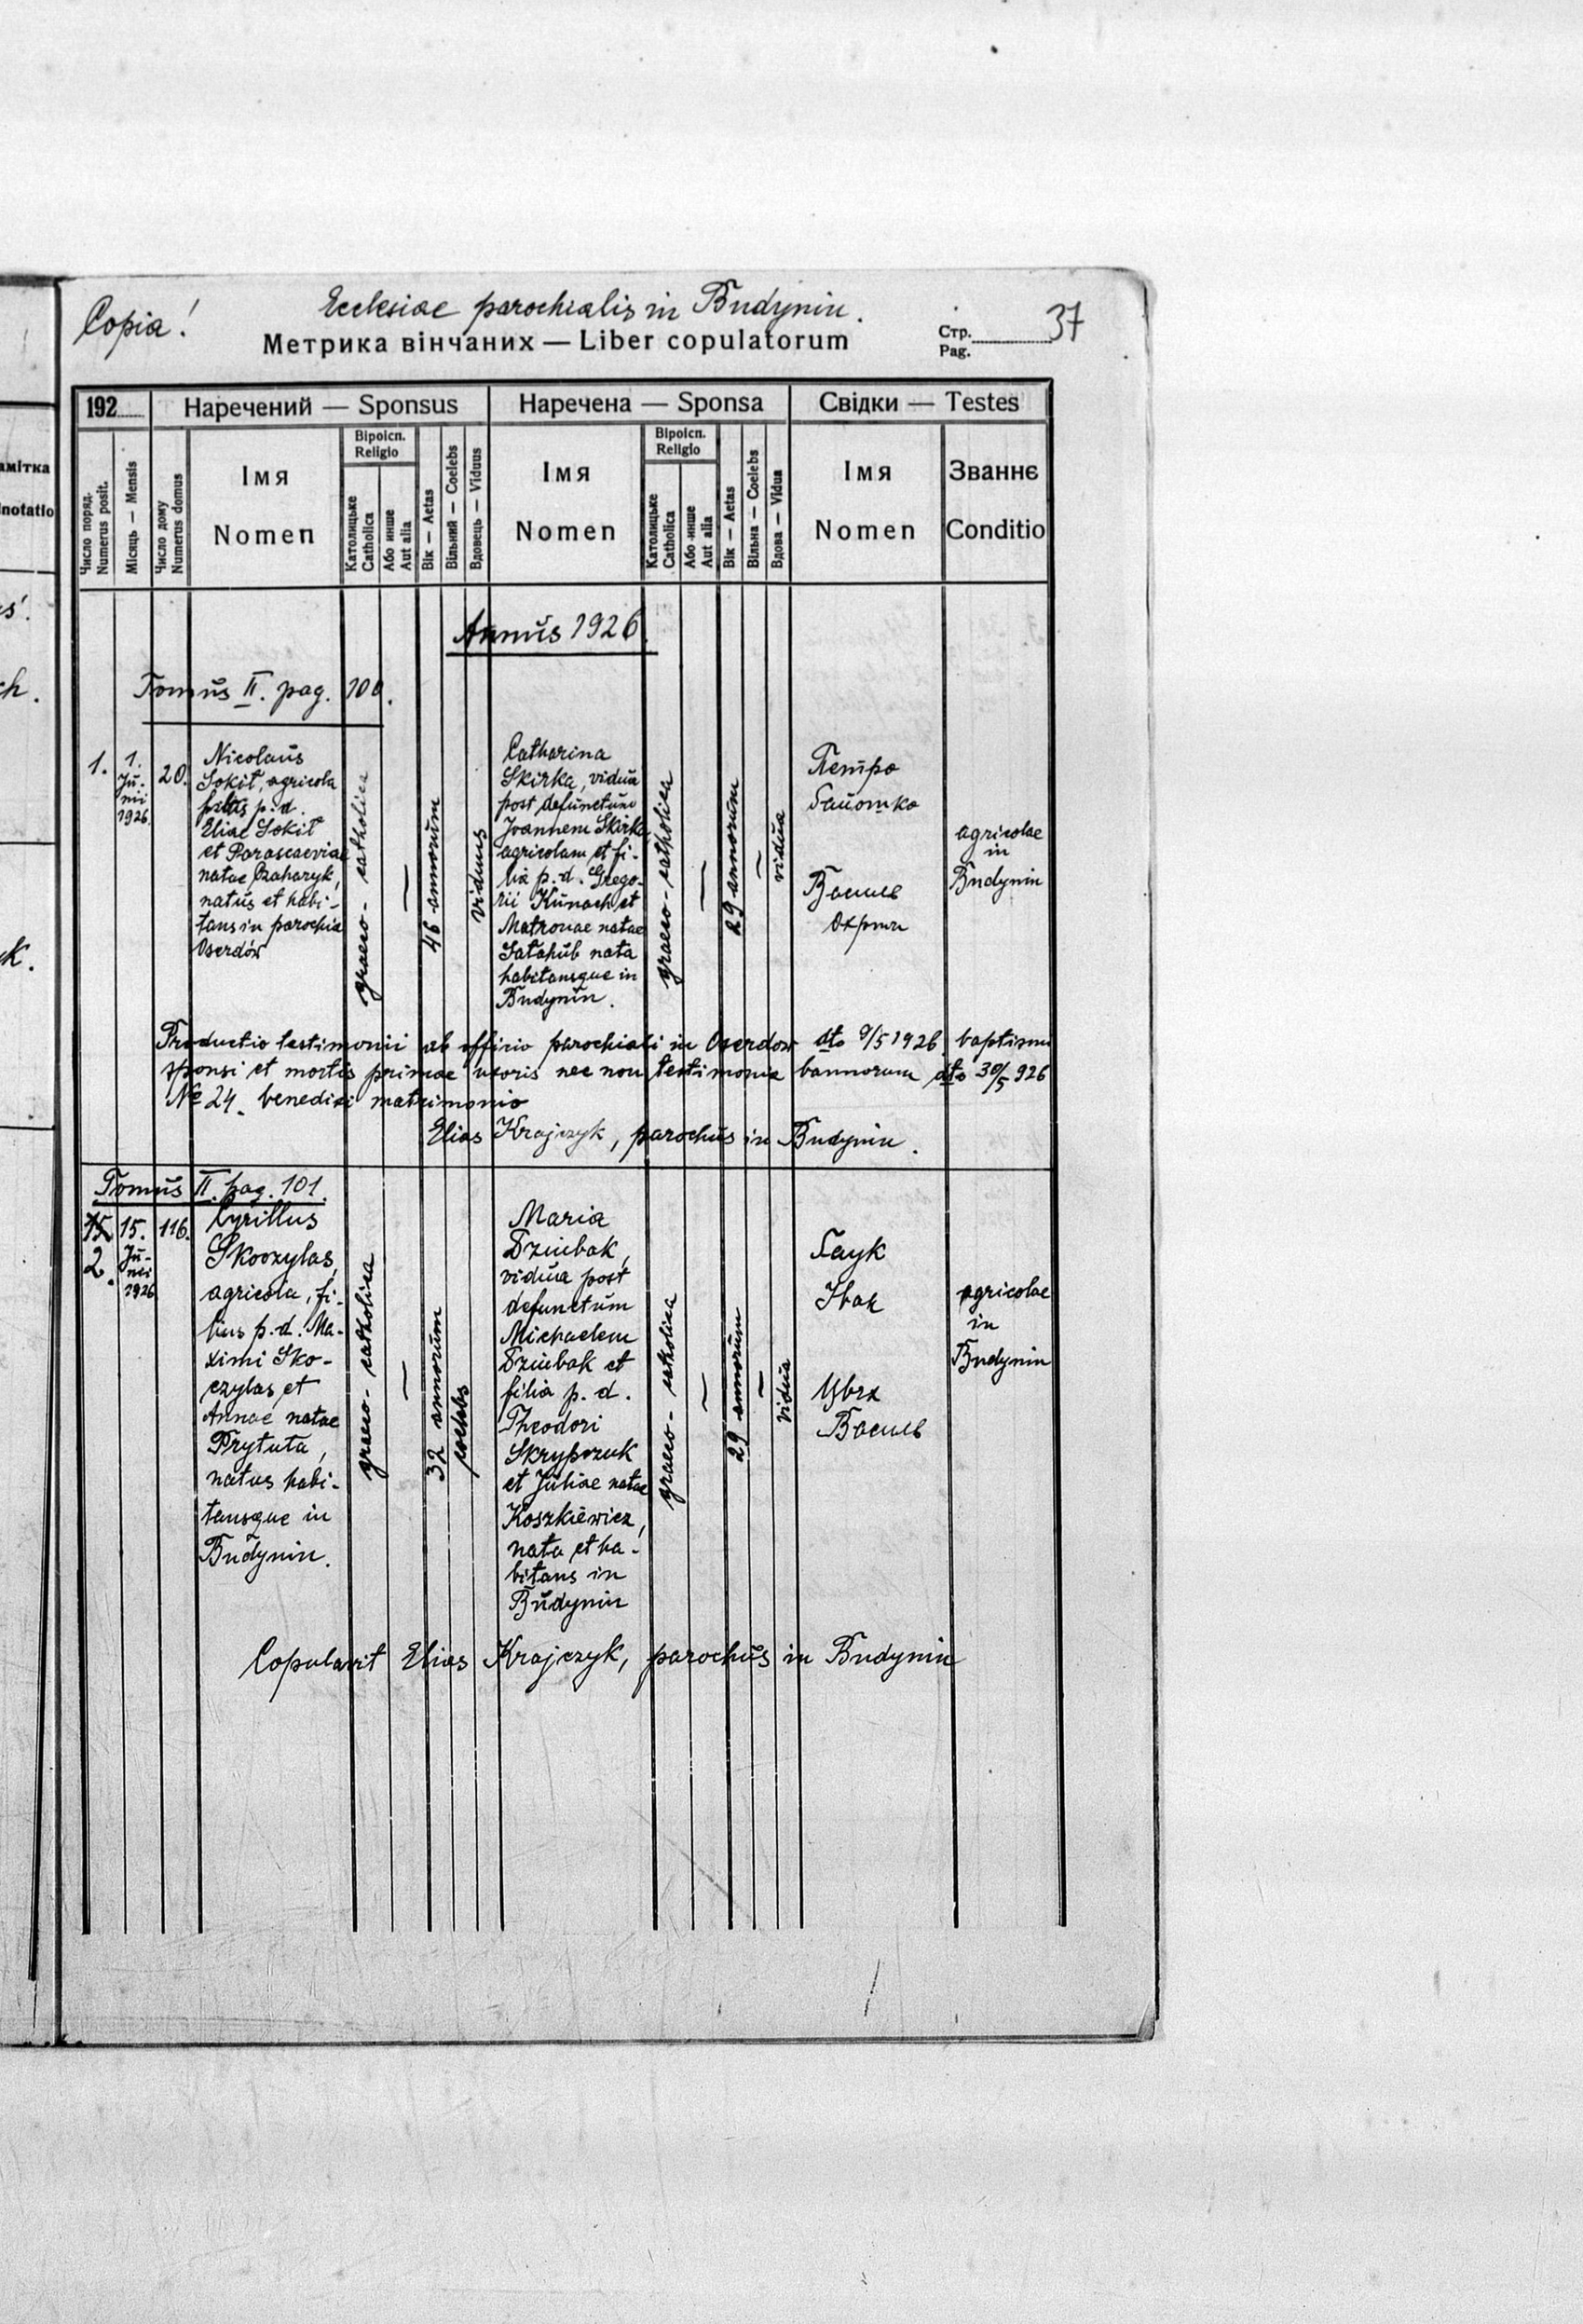 Copia!
Ecclesiae parochialis in Budynin.
Метрика вінчаних — Liber copulatorum
Стр.
Pag.
37
192
Наречений — Sponsus
Наречена — Sponsa
Свідки — Testes
Число поряд.
Numerus posit.
Місяць — Mensis
Число дому
Numerus domus
Імя
Nomen
Віроісп.
Religio
Католицьке
Catholica
Або инше
Aut alia
Вік — Aetas
Вільний — Coelebs
Вдовець — Viduus
Імя
Nomen
Віроісп.
Religio
Католицьке
Catholica
Або инше
Aut alia
Вік — Aetas
Вільна — Coelebs
Вдова — Vidua
Імя
Nomen
Званнє
Conditio
амітка
notatio
Annus 1926.
Tomus II. pag. 100.
1.
1.
Ju-
nii
1926.
20.
Nicolaus
Sokit, agricola
filius p. d.
Eliae Sokit
et Parascaeviae
natae Czaharyk,
natus et habi-
tans in parochia
Oserdów
graeco-catholica
—
46 annorum
viduus
Catharina
Skirka, vidua
post defunctum
Joannem Skirka
agricolam et fi-
lia p. d. Grego-
rii Kunach et
Matronae natae
habitansque in
Budynin.
graeco-catholica
—
29 annorum
—
vidua
Петро
Василь
agricolae
in
Budynin
Productio testimonii ab officio parochiali in Oserdow dto 9/5 1926 baptismi
sponsi et mortis primae uxoris nec non testimonia bannorum dto 30/5 926
№ 24. benedixi matrimonio
Elias Krajczyk, parochus in Budynin.
Tomus II. pag. 101.
15
2.
15.
Ju-
nii
1926
116.
Cyrillus
Skoczylas,
agricola, fi-
lius p. d. Ma-
ximi Sko-
czylas et
Annae natae
Prytuta,
natus habi-
tansque in
Budynin.
graeco-catholica
—
32 annorum
coelebs
Maria
Dziubak,
vidua post
defunctum
Michaelem
Dziubak et
filia p. d.
Theodori
Skrypczuk
et Juliae natae
Koszkiewicz,
nata et ha-
bitans in
Budynin
graeco-catholica
—
29 annorum
—
vidua
Гаук
Іван
Василь
agricolae
in
Budynin
Copulavit Elias Krajczyk, parochus in Budynin